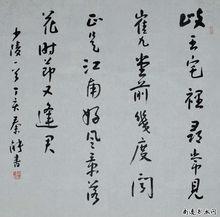 岐王宅裡尋常見
崔九堂前幾度聞
正是江南好風景落
花時節又逢君
少陵一首丁亥秦
書